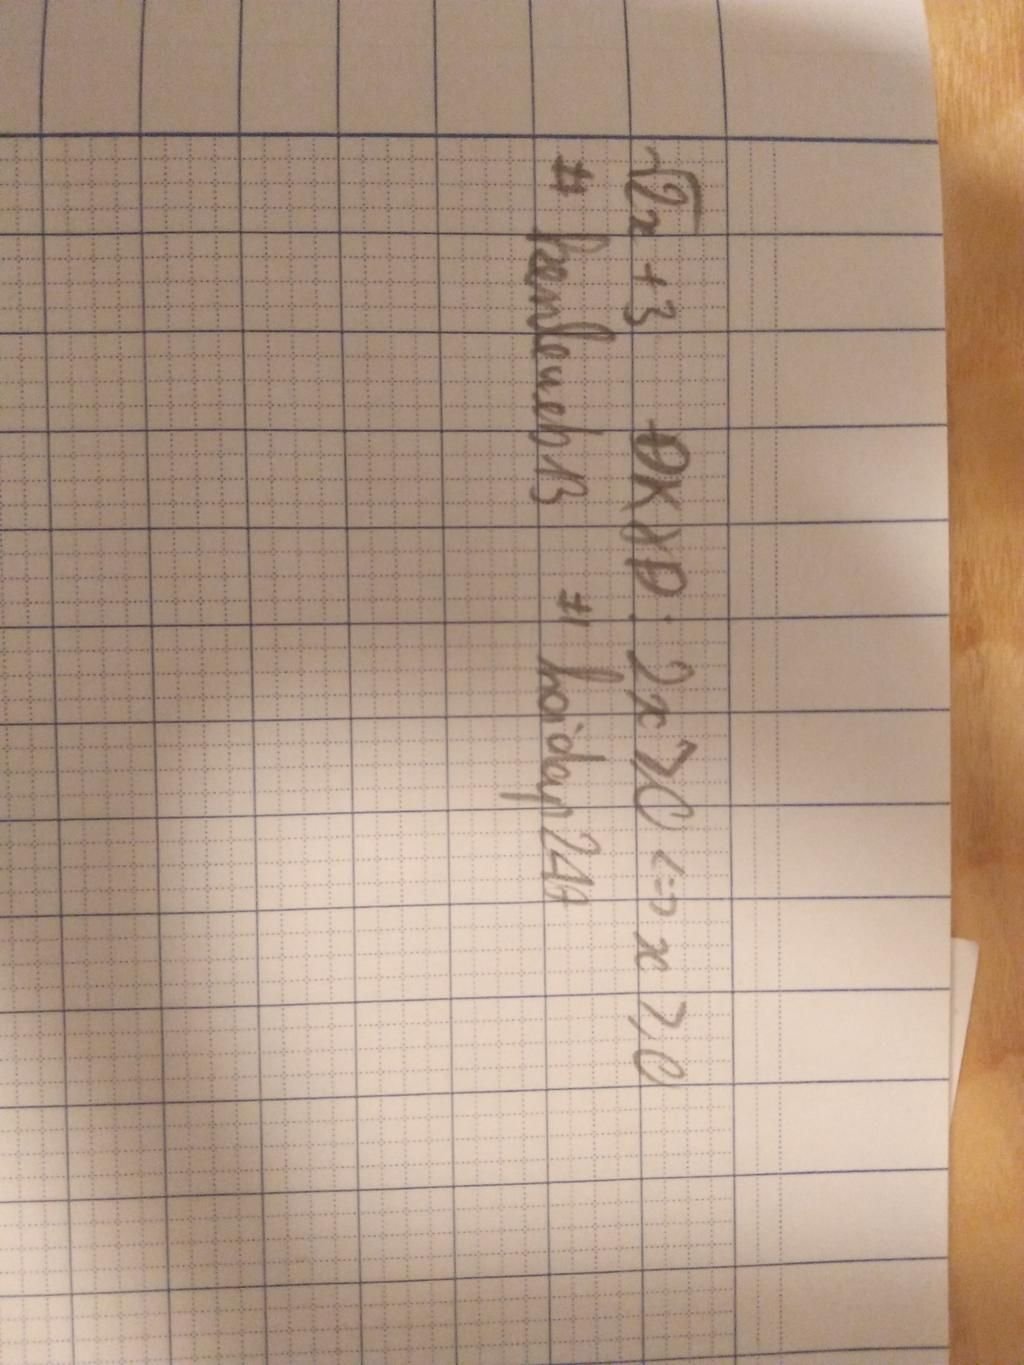 √2x + 3 ĐKXĐ: 2x ⩾ 0 <=> x ⩾ 0
# kenleueb13 # hoidap247